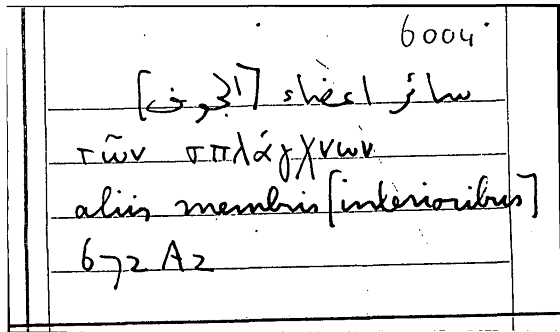 6004
سائر اعضاء [الجوف]
τῶν σπλάγχνων
aliis membris [interioribus]
672 A2